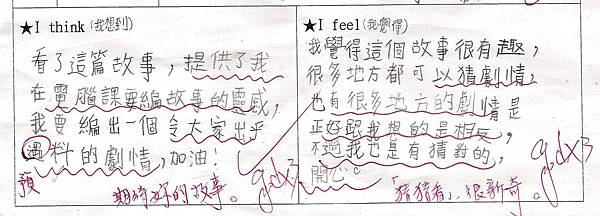 ★I think(我想到)
看了這篇故事，提供了我
在電腦課要編故事的靈感，
我要編出一個令大家出乎
遇料的劇情，加油!
預
期待妳的故事。gdx3
★I feel(我覺得)
我覺得這個故事很有趣，
很多地方都可以猜劇情，
也有很多地方的劇情是
正好跟我想的是相反，
不過我也是有猜對的，
開心。
「猜猜看」很新奇。gdx3